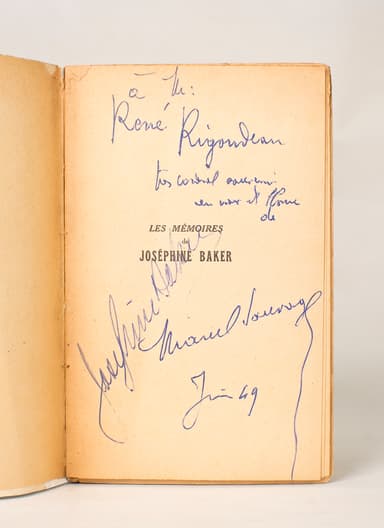 à Mr:
René Rigondeau
très cordial souvenir
en noir et
de
LES MÉMOIRES
de
JOSÉPHINE BAKER
Joséphine Baker
Marcel Sauvage
Juin 49